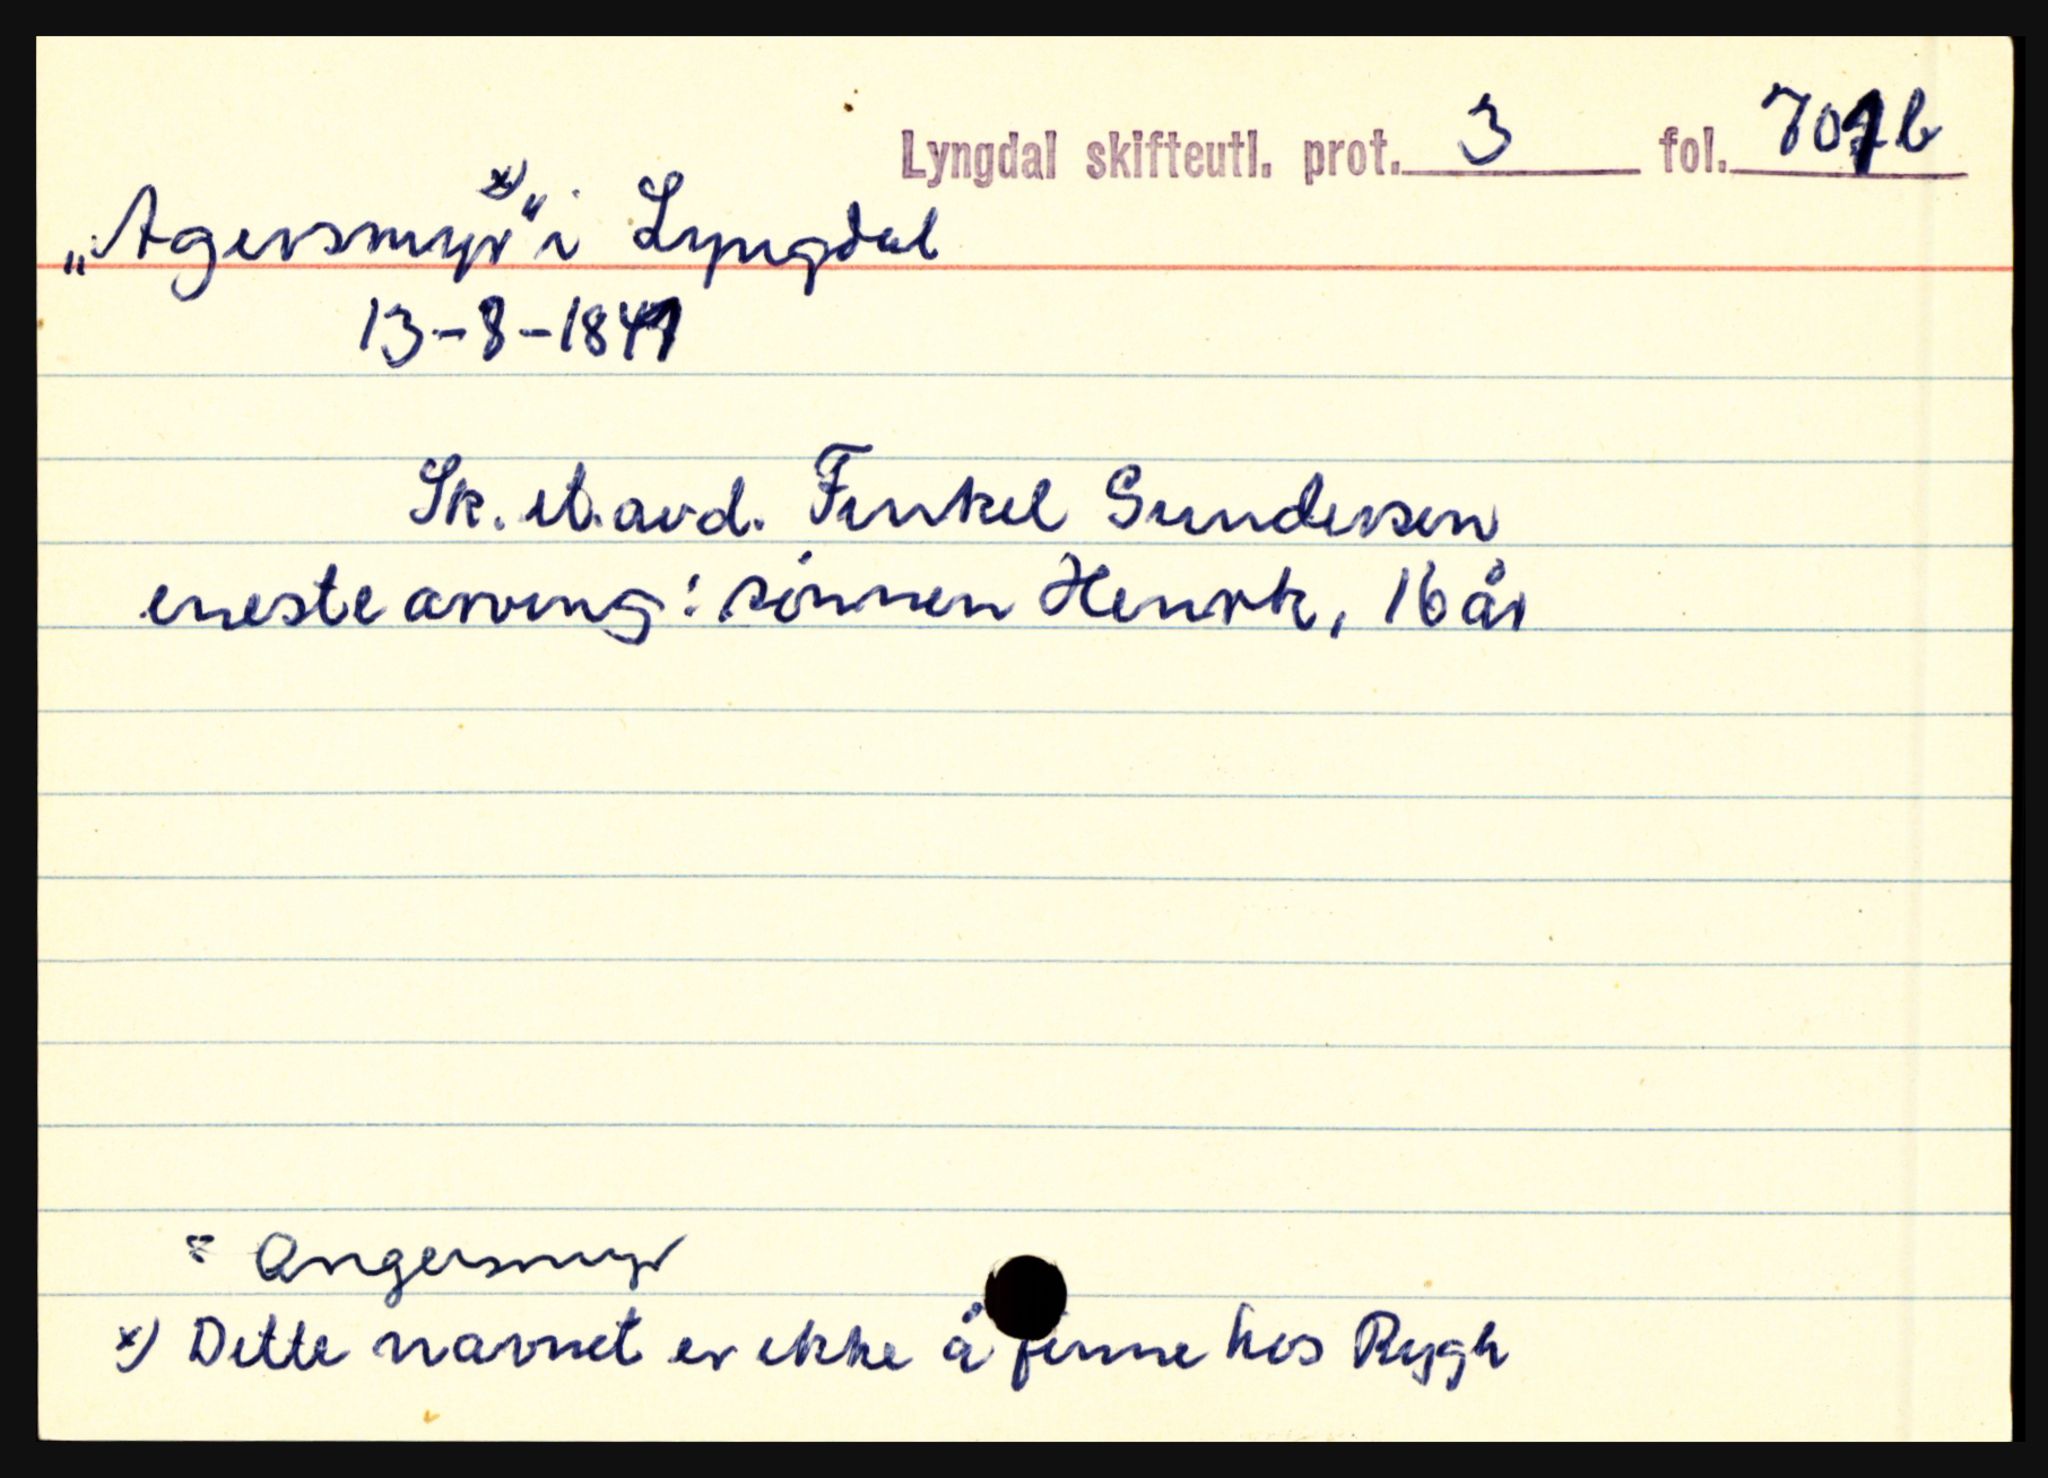 Lyngdal skifteutl. prot. 3 fol. 701b
„Agersmyr“ x) i Lyngdal
13-8-1841
Sk. et. avd. Finkel Gundersen
eneste arving: sönnen Henrik, 16 år
= Angersmyr
x) Dette navnet er ikke å finne hos Rygh